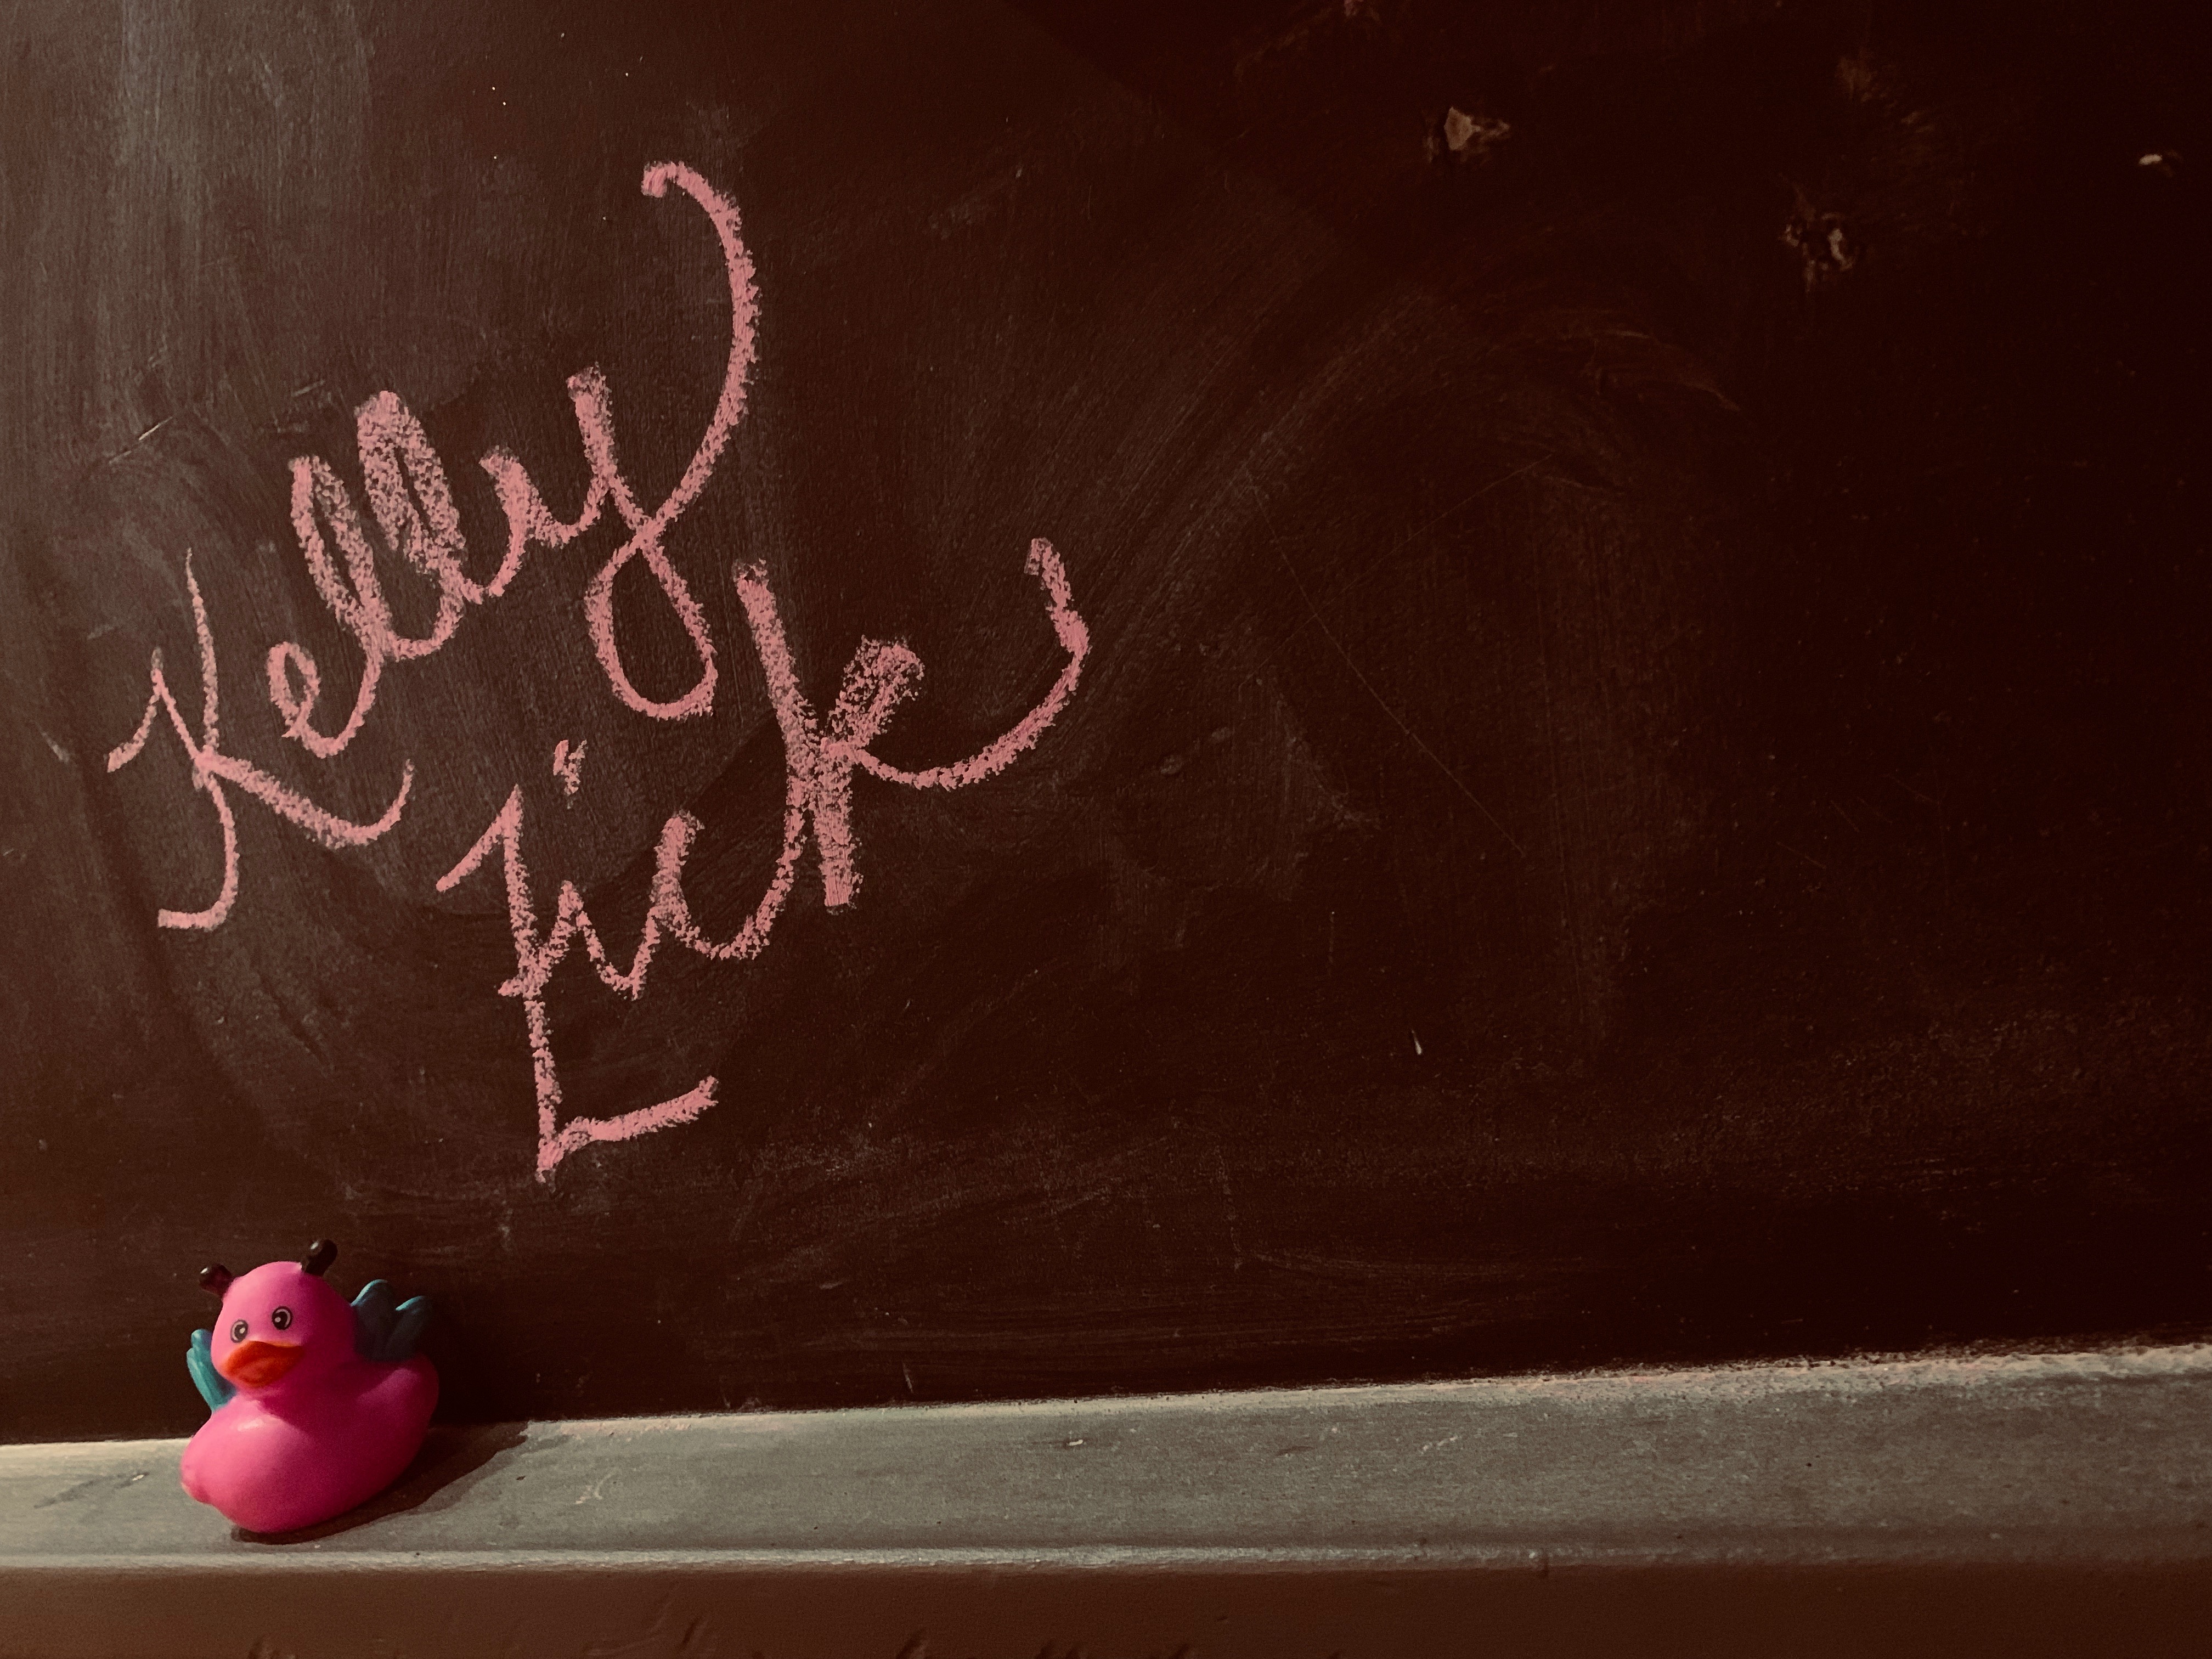 Kelly
Zick